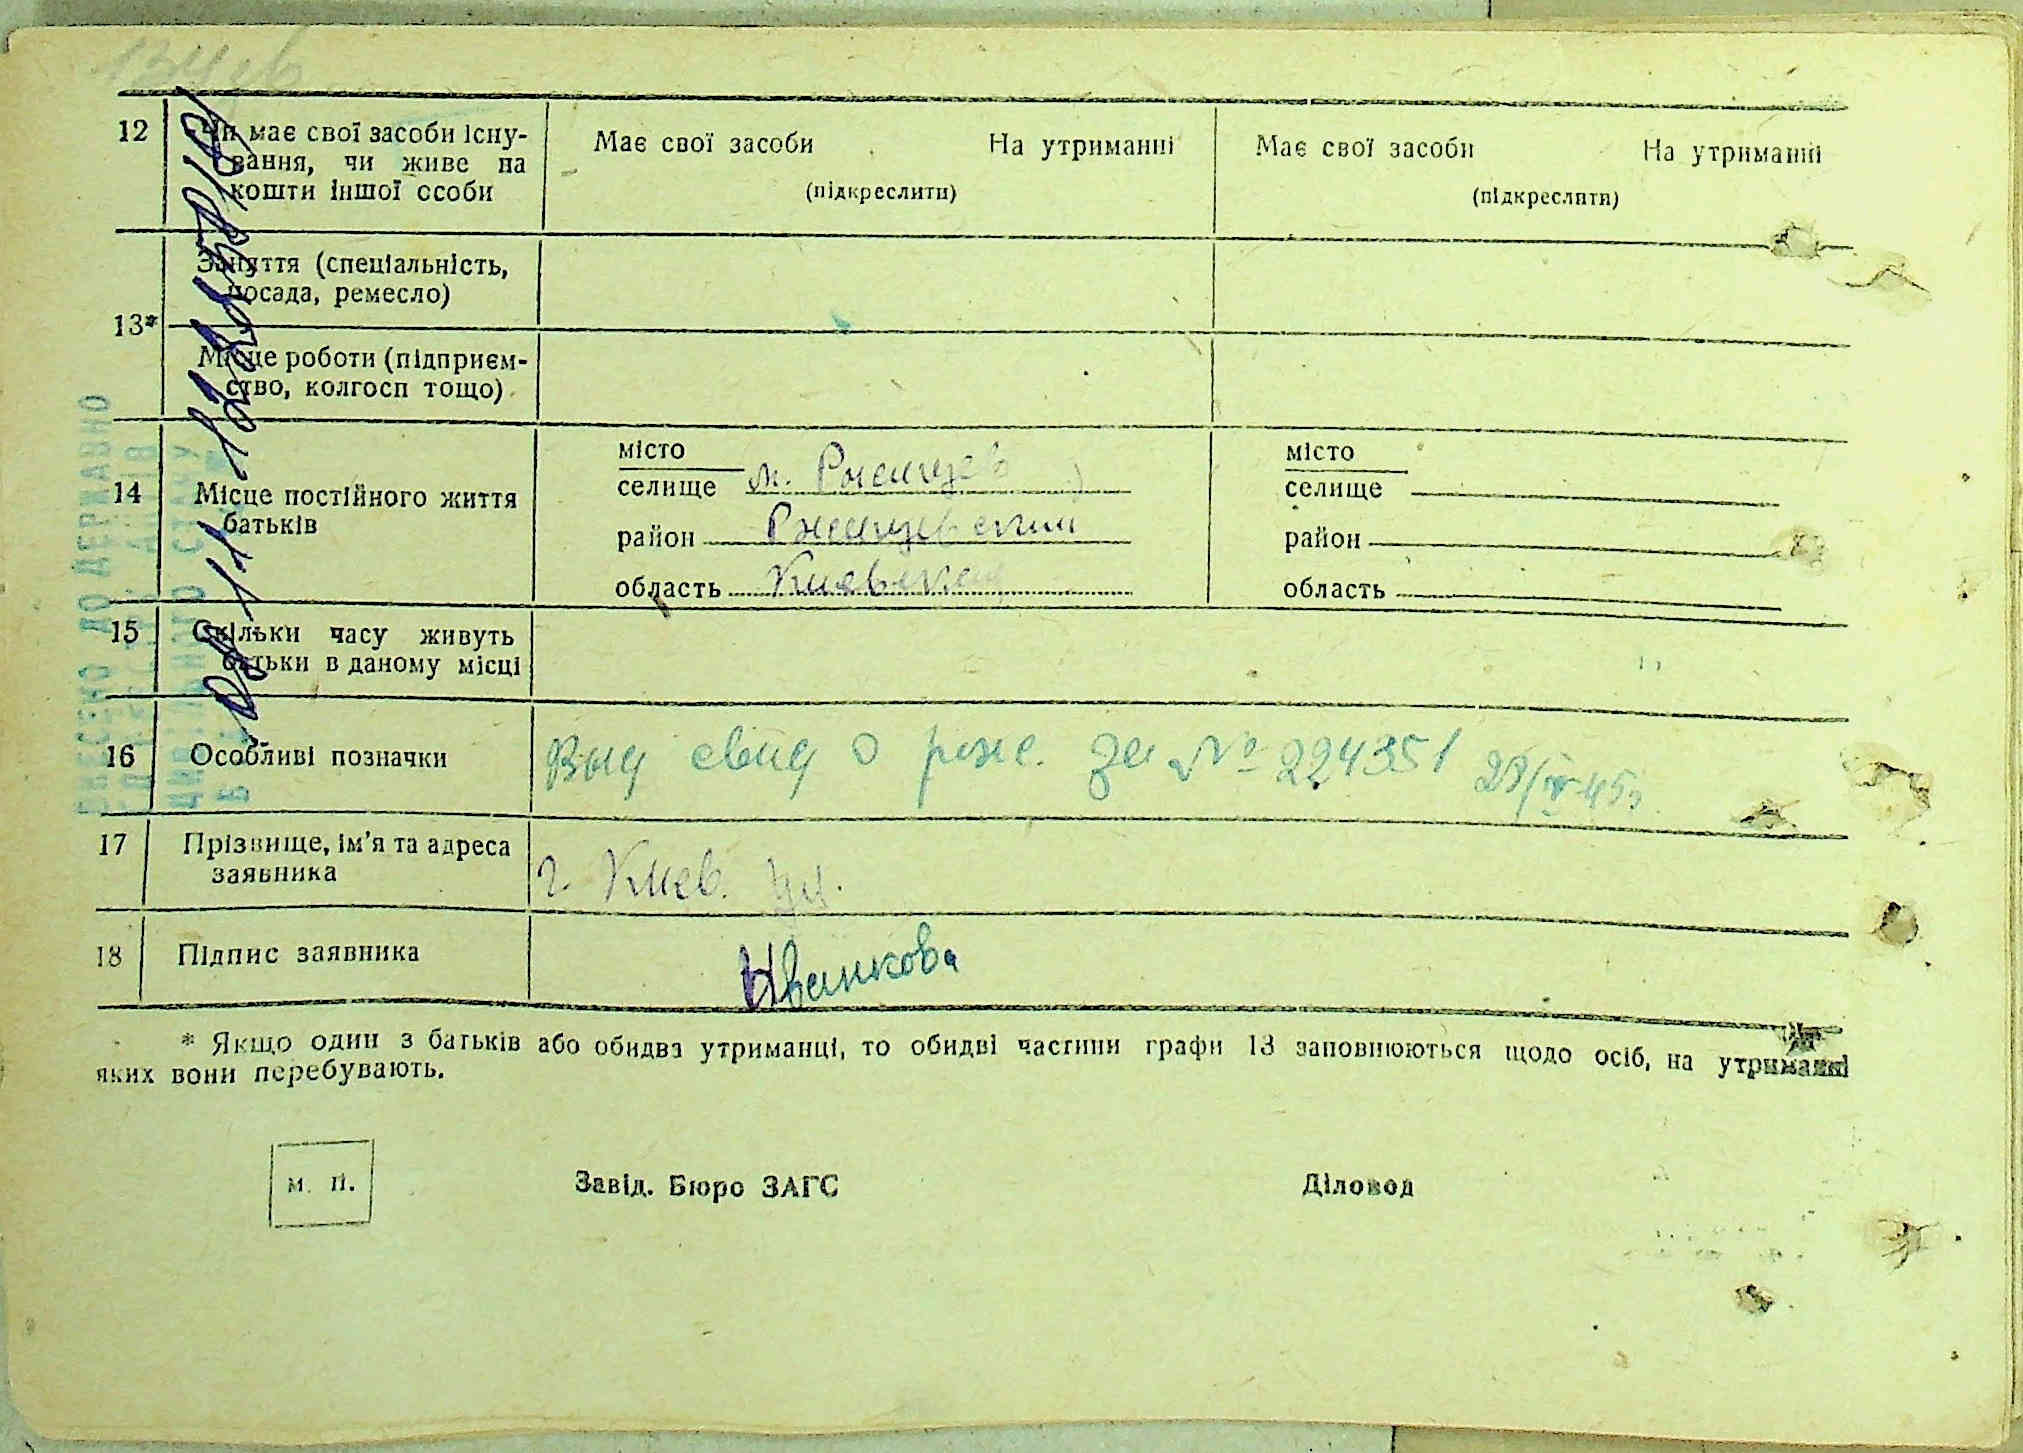 12 Чи має свої засоби існу-
вання, чи живе на
кошти іншої особи
Має свої засоби На утриманні
(підкреслити)
Має свої засоби На утриманні
(підкреслити)
13*
Заняття (спеціальність,
посада, ремесло)
Місце роботи (підприєм-
ство, колгосп тощо)
14 Місце постійного життя
батьків
місто
селище м. Ржищев
район Ржищевский
область Киевская
місто
селище
район
область
15 Скільки часу живуть
батьки в даному місці
16 Особливі позначки
Выд свид о рож. за № 224351 28/IV-45г
17 Прізвище, ім'я та адреса
заявника
г. Киев. ул.
18 Підпис заявника
Иванкова
* Якщо один з батьків або обидва утриманці, то обидві частини графи 13 заповнюються щодо осіб, на утриманні
яких вони перебувають.
м. п.
Завід. Бюро ЗАГС Діловод
ВНЕСЕНО ДО ДЕРЖАВНО